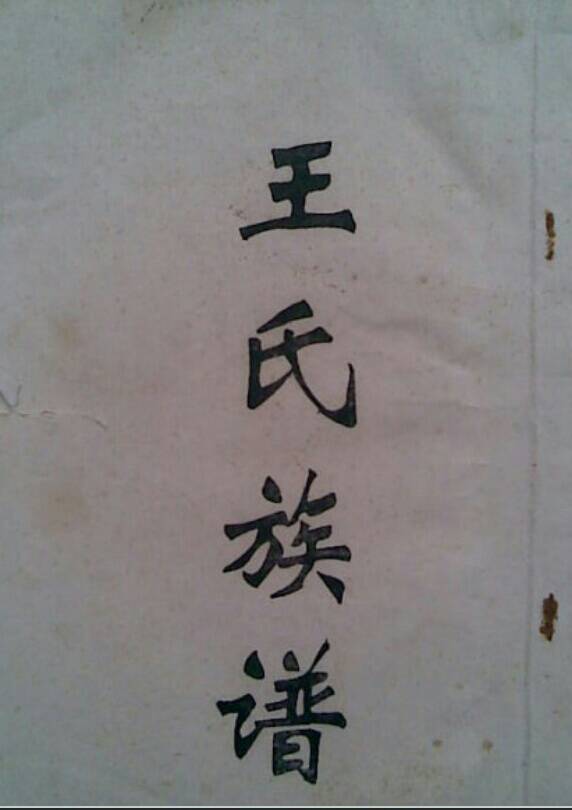 王氏族谱